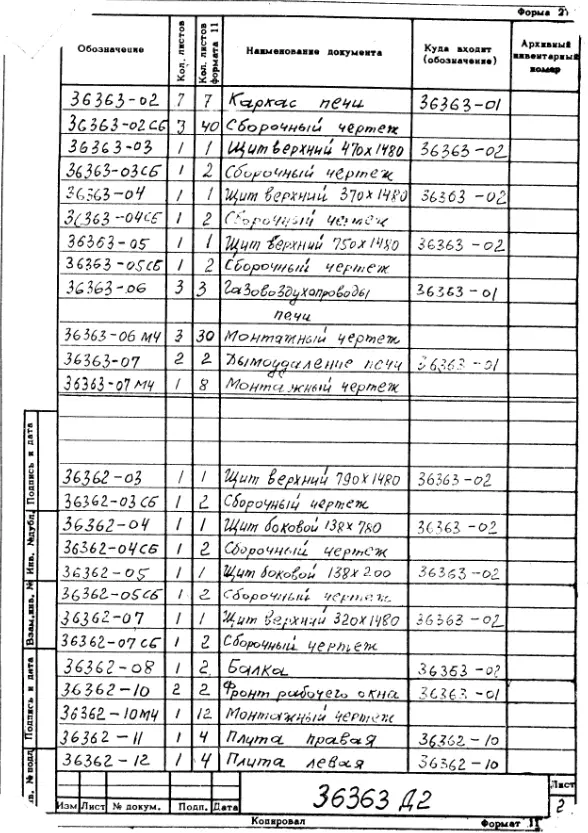 Форма 2
Обозначение | Кол. листов | Кол. листов формата 11 | Наименование документа | Куда входит (обозначение) | Архивный инвентарный номер
36363-02 | 7 | 7 | Каркас печи | 36363-01
36363-02СБ | 3 | 40 | Сборочный чертеж
36363-03 | 1 | 1 | Щит верхний 470х1480 | 36363-02
36363-03СБ | 1 | 2 | Сборочный чертеж
36363-04 | 1 | 1 | Щит верхний 370х1480 | 36363-02
36363-04СБ | 1 | 2 | Сборочный чертеж
36363-05 | 1 | 1 | Щит верхний 750х1480 | 36363-02
36363-05СБ | 1 | 2 | Сборочный чертеж
36363-06 | 3 | 3 | Газовоздухопроводы | 36363-01
печи
36363-06 МЧ | 3 | 30 | Монтажный чертеж
36363-07 | 2 | 2 | Дымоудаление печи | 36363-01
36363-07 МЧ | 1 | 8 | Монтажный чертеж
36362-03 | 1 | 1 | Щит верхний 790х1480 | 36363-02
36362-03СБ | 1 | 2 | Сборочный чертеж
36362-04 | 1 | 1 | Щит боковой 138х780 | 36363-02
36362-04СБ | 1 | 2 | Сборочный чертеж
36362-05 | 1 | 1 | Щит боковой 138х200 | 36363-02
36362-05СБ | 1 | 2 | Сборочный чертеж
36362-07 | 1 | 1 | Щит верхний 320х1480 | 36363-02
36362-07СБ | 1 | 2 | Сборочный чертеж
36362-08 | 1 | 2 | Балка | 36363-02
36362-10 | 2 | 2 | Фронт рабочего окна | 36363-01
36362-10МЧ | 1 | 12 | Монтажный чертеж
36362-11 | 1 | 4 | Плита правая | 36362-10
36362-12 | 1 | 4 | Плита левая | 36362-10
Подпись и дата
Инв. №дубл.
Взам.инв. №
Подпись и дата
№ подл.
Изм | Лист | № докум. | Подп. | Дата
36363 Д2
Лист
2
Копировал
Формат 11